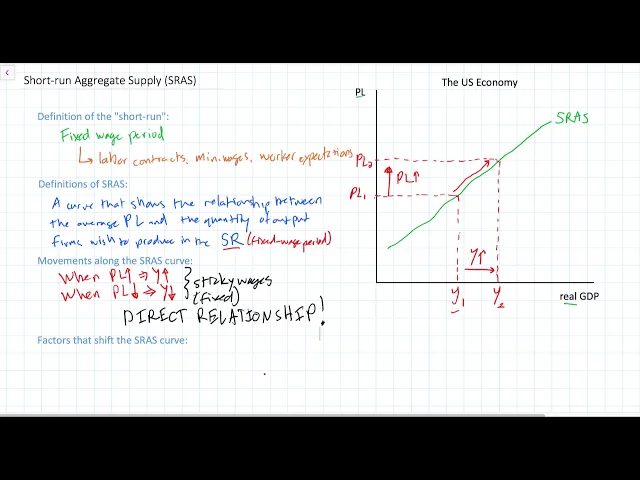 Short-run Aggregate Supply (SRAS)
Definition of the "short-run":
Fixed wage period
↳ labor contracts, min. wages, worker expectations
Definitions of SRAS:
A curve that shows the relationship between
the average PL and the quantity of output
firms wish to produce in the SR (fixed-wage period)
Movements along the SRAS curve:
When PL↑ ⇒ Y↑
When PL↓ ⇒ Y↓
} sticky wages
(fixed)
DIRECT RELATIONSHIP!
Factors that shift the SRAS curve:
The US Economy
PL
SRAS
PL₂
PL↑
PL₁
Y↑
Y₁ Y₂
real GDP